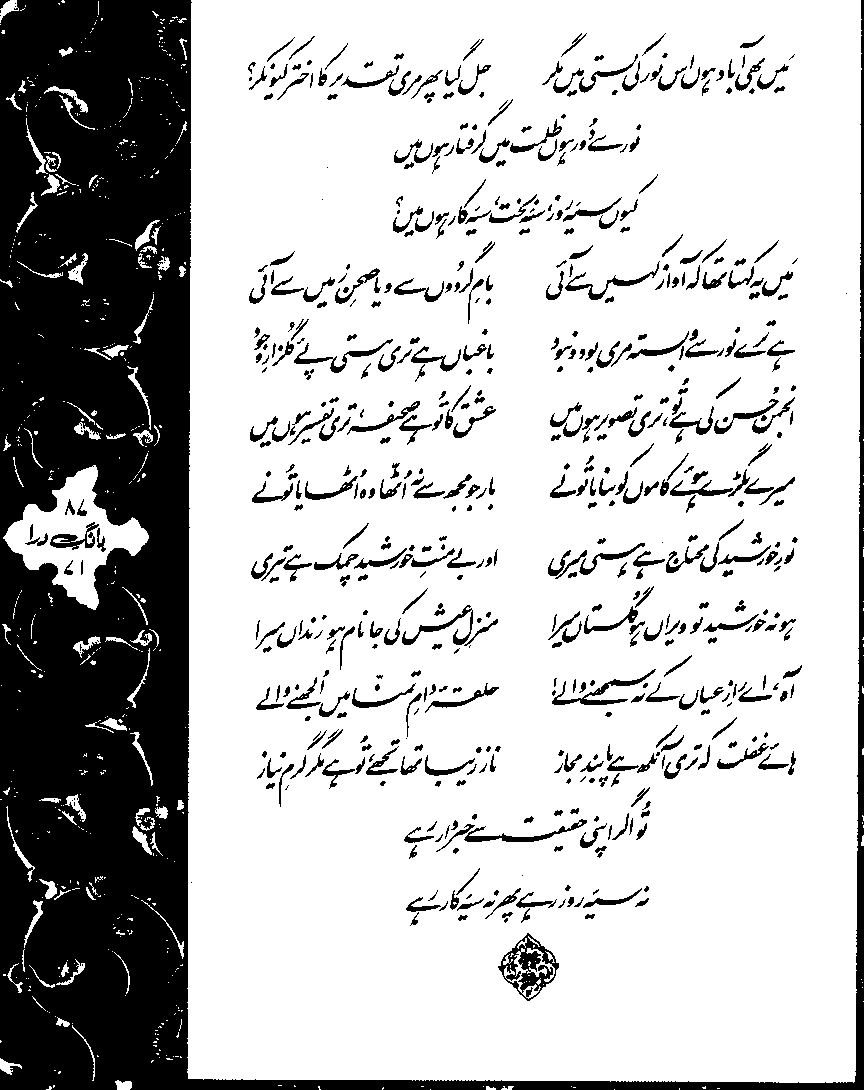 مَیں بھی آباد ہوں اس نور کی بستی میں مگر جل گیا پھر مری تقدیر کا اختر کیونکر؟
نور سے دُور ہوں ظلمت میں گرفتار ہوں میں
کیوں سیہ روز، سیہ بخت، سیہ کار ہوں میں؟
مَیں یہ کہتا تھا کہ آواز کہیں سے آئی بامِ گردُوں سے و یا صحنِ زمیں سے آئی
ہے ترے نور سے وابستہ مری بود و نبود باغباں ہے تری ہستی پئے گُلزارِ وجود
انجمن حُسن کی ہے تُو، تری تصویر ہوں میں عشق کا تُو ہے صحیفہ، تری تفسیر ہوں میں
میرے بگڑے ہوئے کاموں کو بنایا تُو نے بار جو مجھ سے نہ اُٹھّا وہ اُٹھایا تُو نے
نورِ خورشید کی محتاج ہے ہستی میری اور بے منّتِ خورشید چمک ہے تیری
ہو نہ خورشید تو ویراں ہو گُلستاں میرا منزلِ عیش کی جا نام ہو زنداں میرا
آہ، اے رازِ عیاں کے نہ سمجھنے والے! حلقۂ دامِ تمنّا میں اُلجھنے والے
ہائے غفلت کہ تری آنکھ ہے پابندِ مجاز ناز زیبا تھا تجھے، تُو ہے مگر گرمِ نیاز
تُو اگر اپنی حقیقت سے خبردار رہے
نہ سیہ روز رہے پھر نہ سیہ کار رہے
۸۷
بانگِ درا
۷۱